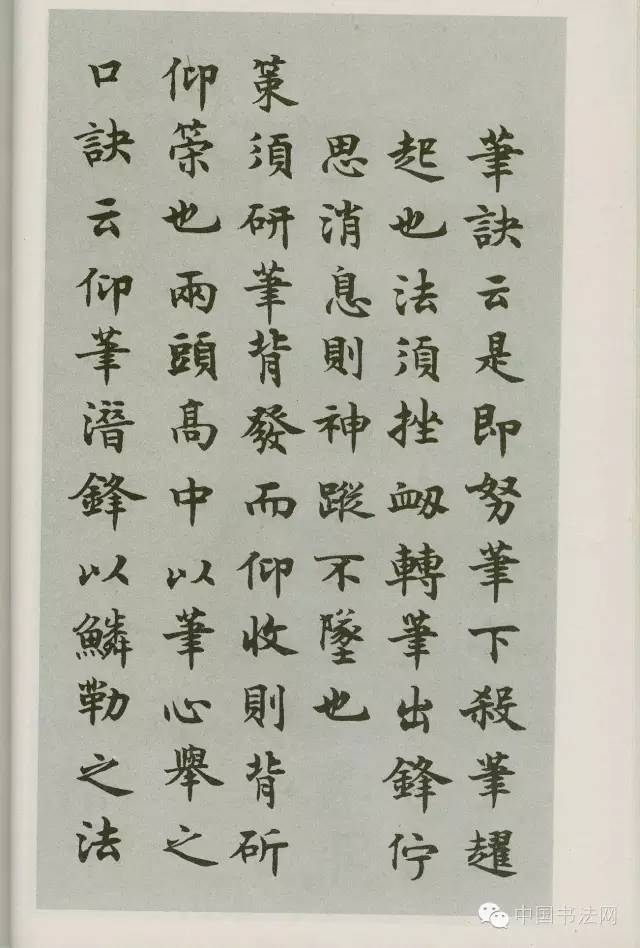 筆訣云是即努筆下殺筆趯
起也法須挫衂轉筆出鋒佇
思消息則神蹤不墜也
策須研筆背發而仰收則背斫
仰策也兩頭高中以筆心舉之
口訣云仰筆潛鋒以鱗勒之法
中国书法网